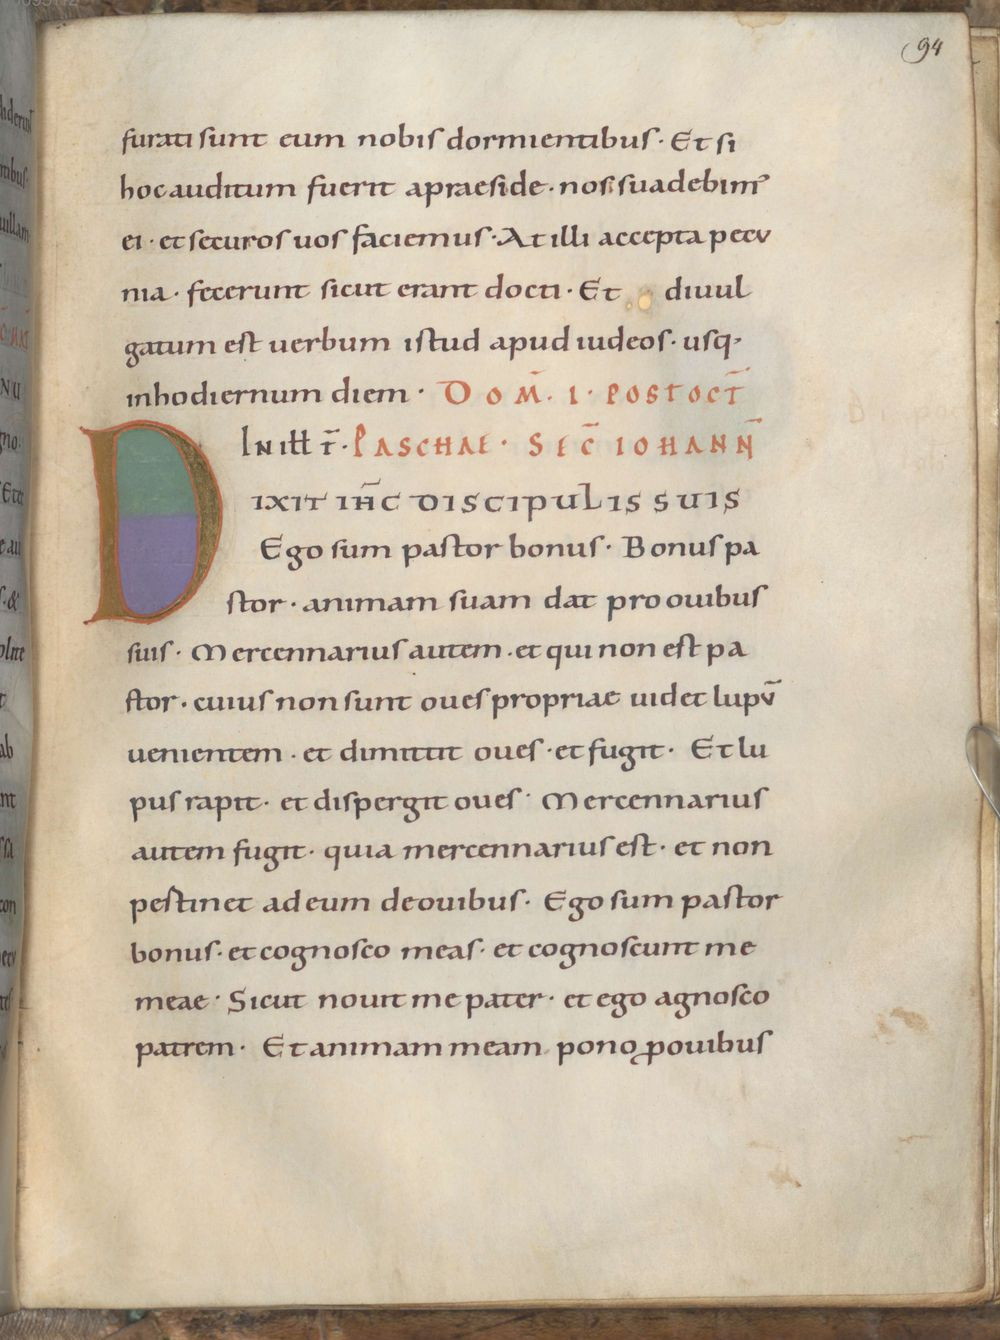 94
furati sunt eum nobis dormientibus· Et si
hoc auditum fuerit apraeside· nos suadebim᾽
ei· et securos uos faciemus· At illi accepta pecu
nia· fecerunt sicut erant docti· Et diuul
gatum est uerbum istud apud iudeos· usq·
inhodiernum diem· DOM̄· I· POST OCT̄
In ill̄ t̄· PASCHAE· SEC̄ IOHANN̄
DIXIT IHC̄ DISCIPULIS SUIS
Ego sum pastor bonus· Bonus pa
stor· animam suam dat pro ouibus
suis· Mercennarius autem· et qui non est pa
stor· cuius non sunt oues propriae uidet lupū
uenientem· et dimittit oues· et fugit· Et lu
pus rapit· et dispergit oues· Mercennarius
autem fugit· quia mercennarius est· et non
pestinet ad eum deouibus· Ego sum pastor
bonus· et cognosco meas· et cognoscunt me
meae· Sicut nouit me pater· et ego agnosco
patrem· Et animam meam pono ꝓ ouibus